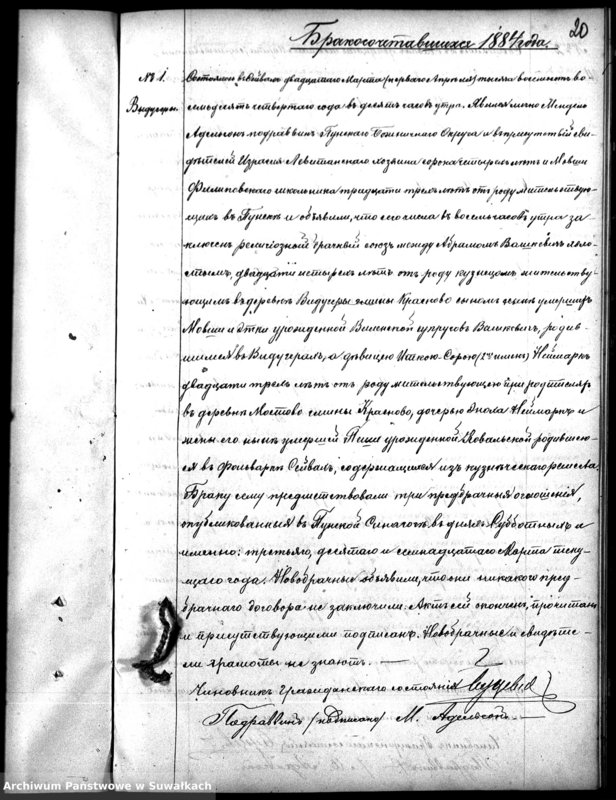 20
Бракосочетавшихся 1884 года.
№ 1. Состоялось въ Сейнахъ двадцатаго Марта (перваго Апрѣля) тысяча восемьсотъ во
Видугеры. семьдесятъ четвертаго года въ десять часовъ утра. Явился лично Мендель
Адельсонъ подраввинъ Пунскаго Божничнаго Округа и въ присутствіи сви
дѣтелей Израеля Левитанскаго хозяина сорока четырехъ лѣтъ и Мовши
Филиповскаго школьника тридцати трехъ лѣтъ отъ роду жительствую
щихъ въ Пунскѣ и объявили, что сего числа въ восемь часовъ утра за
ключенъ религіозный брачный союзъ между Абрамомъ Вашкевичъ холо
стымъ, двадцати четырехъ лѣтъ отъ роду кузнецомъ жительству
ющимъ въ деревнѣ Видугеры гмины Красново сыномъ нынѣ умершихъ
Мовши и урожденной супруговъ Вашкевичъ, родив
шимся въ Видугерахъ, и дѣвицею Иткою-Сорою (2хъ именъ) Неймаркъ
двадцати трехъ лѣтъ отъ роду жительствующею при родителяхъ
въ деревнѣ Мостово гмины Красново, дочерью Неймаркъ и
жены его нынѣ умершей Пеши урожденной Ковальской родившею
ся въ фольваркѣ Сейвахъ, содержащимся изъ кузнеческаго ремесла.
Браку сему предшествовали три предбрачныя оглашенія,
опубликованныя въ Пунской Синагогѣ въ дняхъ Субботныхъ а
именно: третьяго, десятаго и семнадцатаго Марта теку
щаго года. Новобрачные объявили, что они никакого пред
брачнаго договора не заключили. Актъ сей оконченъ, прочитанъ
и присутствующими подписанъ. Новобрачные и свидѣте
ли грамоты не знаютъ.
Чиновникъ Гражданскаго состоянія
Подраввинъ (подписано) М. Адельсонъ
Archiwum Państwowe w Suwałkach